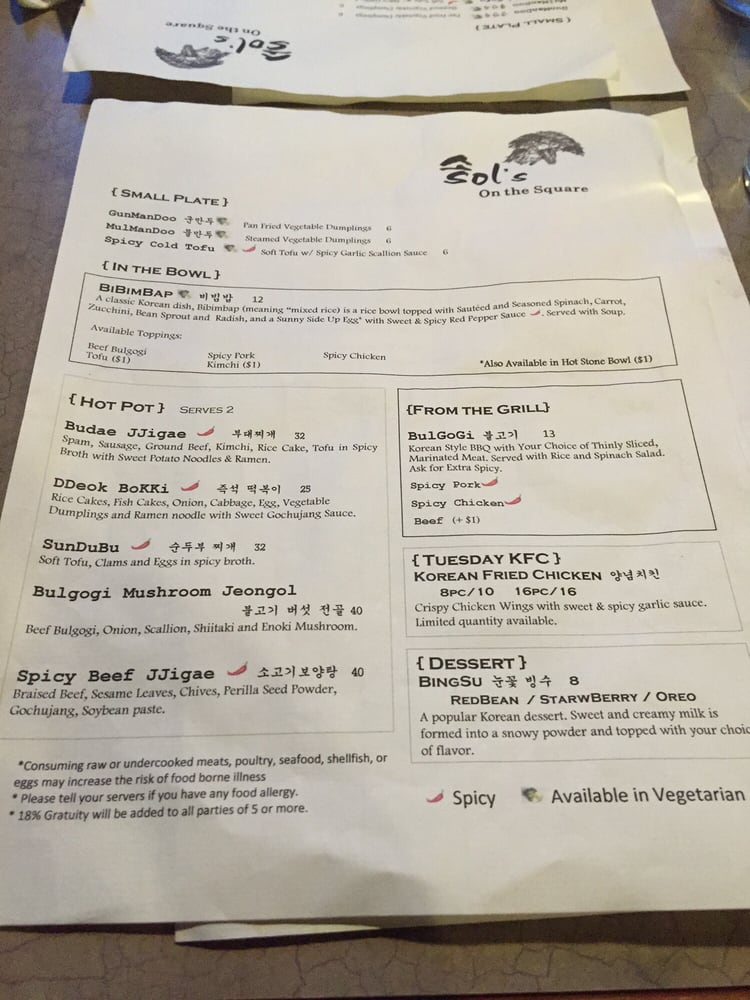 On the Square
Sol's
{ SMALL PLATE }
솔
Sol's
On the Square
{ SMALL PLATE }
GunManDoo 군만두 Pan Fried Vegetable Dumplings 6
MulManDoo 물만두 Steamed Vegetable Dumplings 6
Spicy Cold Tofu Soft Tofu w/ Spicy Garlic Scallion Sauce 6
{ IN THE BOWL }
BIBIMBAP 비빔밥 12
A classic Korean dish, Bibimbap (meaning "mixed rice) is a rice bowl topped with Sautéed and Seasoned Spinach, Carrot,
Zucchini, Bean Sprout and Radish, and a Sunny Side Up Egg* with Sweet & Spicy Red Pepper Sauce . Served with Soup.
Available Toppings:
Beef Bulgogi Spicy Pork Spicy Chicken
Tofu ($1) Kimchi ($1) *Also Available in Hot Stone Bowl ($1)
{ HOT POT } SERVES 2
Budae JJigae 부대찌개 32
Spam, Sausage, Ground Beef, Kimchi, Rice Cake, Tofu in Spicy
Broth with Sweet Potato Noodles & Ramen.
DDeok BoKKi 즉석 떡볶이 25
Rice Cakes, Fish Cakes, Onion, Cabbage, Egg, Vegetable
Dumplings and Ramen noodle with Sweet Gochujang Sauce.
SunDuBu 순두부 찌개 32
Soft Tofu, Clams and Eggs in spicy broth.
Bulgogi Mushroom Jeongol
불고기 버섯 전골 40
Beef Bulgogi, Onion, Scallion, Shiitaki and Enoki Mushroom.
Spicy Beef JJigae 소고기보양탕 40
Braised Beef, Sesame Leaves, Chives, Perilla Seed Powder,
Gochujang, Soybean paste.
{FROM THE GRILL}
BulGoGi 불고기 13
Korean Style BBQ with Your Choice of Thinly Sliced,
Marinated Meat. Served with Rice and Spinach Salad.
Ask for Extra Spicy.
Spicy Pork
Spicy Chicken
Beef (+ $1)
{ TUESDAY KFC }
KOREAN FRIED CHICKEN 양념치킨
8PC/10 16PC/16
Crispy Chicken Wings with sweet & spicy garlic sauce.
Limited quantity available.
{ DESSERT }
BINGSU 눈꽃 빙수 8
REDBEAN / STARWBERRY / OREO
A popular Korean dessert. Sweet and creamy milk is
formed into a snowy powder and topped with your choic
of flavor.
*Consuming raw or undercooked meats, poultry, seafood, shellfish, or
eggs may increase the risk of food borne illness
* Please tell your servers if you have any food allergy.
* 18% Gratuity will be added to all parties of 5 or more.
Spicy Available in Vegetarian